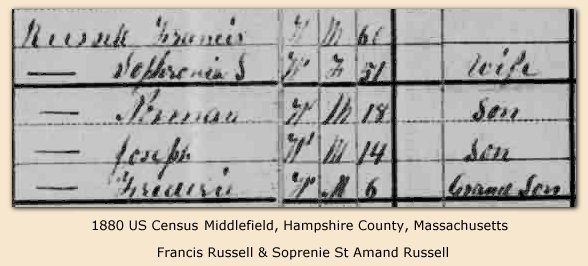 Russell Francis W M 60
— Sophronia S W F 51 Wife
— W M 18 Son
— Joseph W M 14 Son
— W M 6 Grand Son
1880 US Census Middlefield, Hampshire County, Massachusetts
Francis Russell & Soprenie St Amand Russell